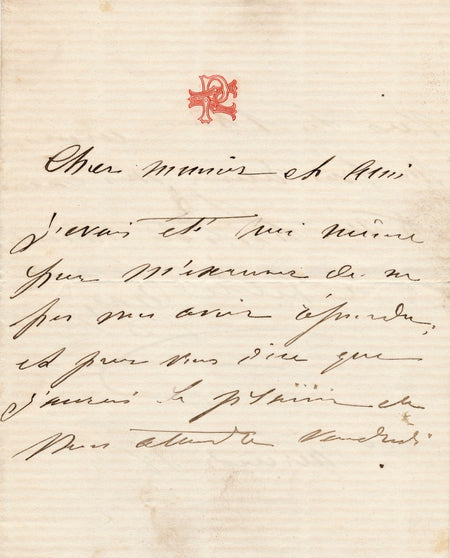 Cher monsieur et ami
j'avais été moi même
pour m'excuser de ne
pas vous avoir répondu,
et pour vous dire que
j'aurai le plaisir de
vous attendre vendredi